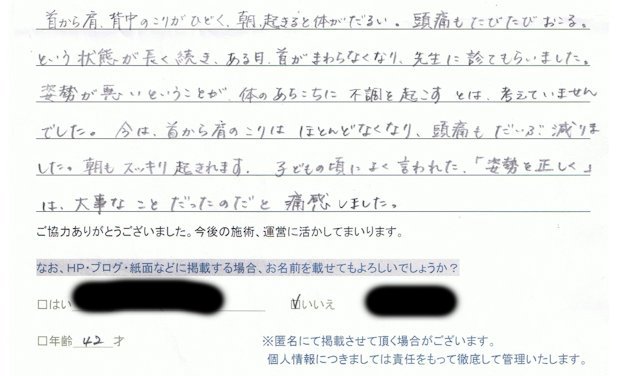 首から肩、背中のこりがひどく、朝、起きると体がだるい。頭痛もたびたびおこる。
という状態が長く続き、ある日、首がまわらなくなり、先生に診てもらいました。
姿勢が悪いということが、体のあちこちに不調を起こすとは、考えていません
でした。今は、首から肩のこりはほとんどなくなり、頭痛もだいぶ減りま
した。朝もスッキリ起きれます。子どもの頃によく言われた、「姿勢を正しく」
は、大事なことだったのだと痛感しました。
ご協力ありがとうございました。今後の施術、運営に活かしてまいります。
なお、HP・ブログ・紙面などに掲載する場合、お名前を載せてもよろしいでしょうか？
□はい ☑いいえ
□年齢 42 才 ※匿名にて掲載させて頂く場合がございます。
個人情報につきましては責任をもって徹底して管理いたします。